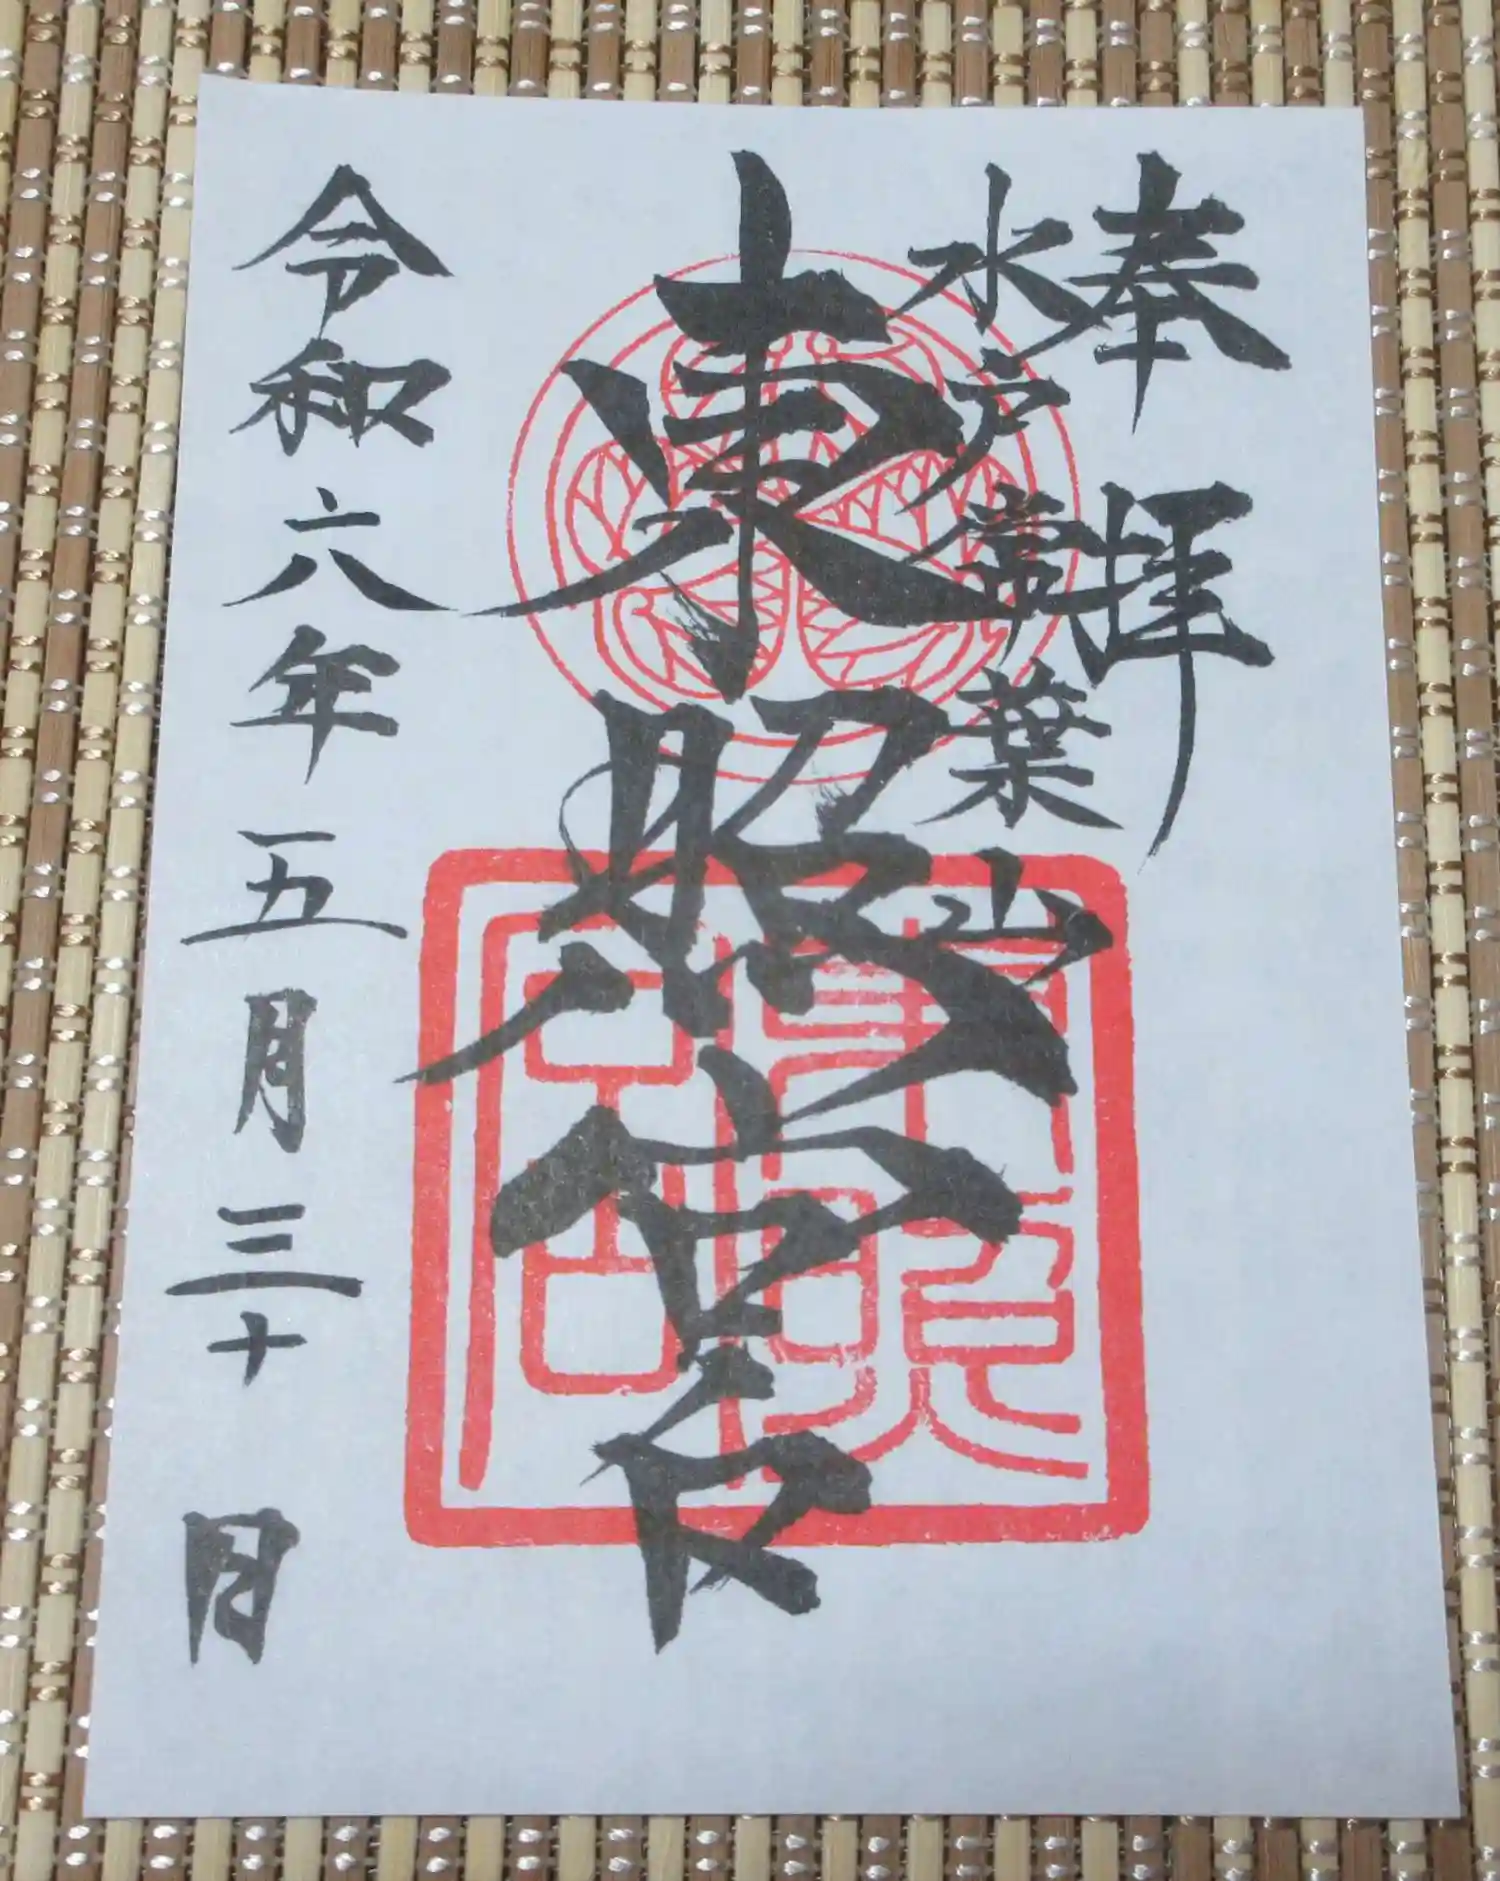 奉拝
水戸常葉山
東照宮
令和六年五月三十日
東照宮印